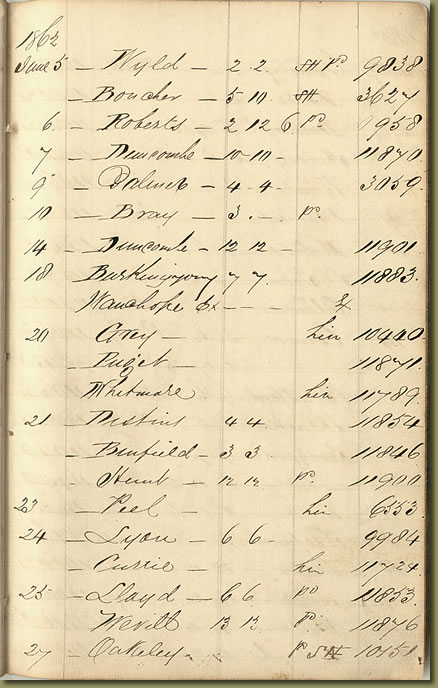 1862
June 5 — Wyld — 2 . 2 . SH Po 9838
— Boucher — 5 10 . SH . 3627
6 — Roberts — 2 12 6 Po 958
7 — Duncombe — 10 - 10 - 11870
9 — Palmer — 4 - 4 - 3059
10 — Bray — 3 . — Po .
14 — Duncombe — 12 12 — 11901
18 7 7 . 11883
Wauchope Ex — — —
20 — Corey — hin 10440
— Puget — 11871
Whitmore hin 11789
21 — Destins 4 4 11854
— Binfield — 3 3 11846
Hunt — 12 12 Po 11900
23 — Peel — hin 6553
24 — Lyon — 6 . 6 — 9984
— Currie — hin 11724
25 — Lloyd — 6 6 Po 11853
Wevitt 13 13 Po . 11876
27 — Oakeley . P SH 10151